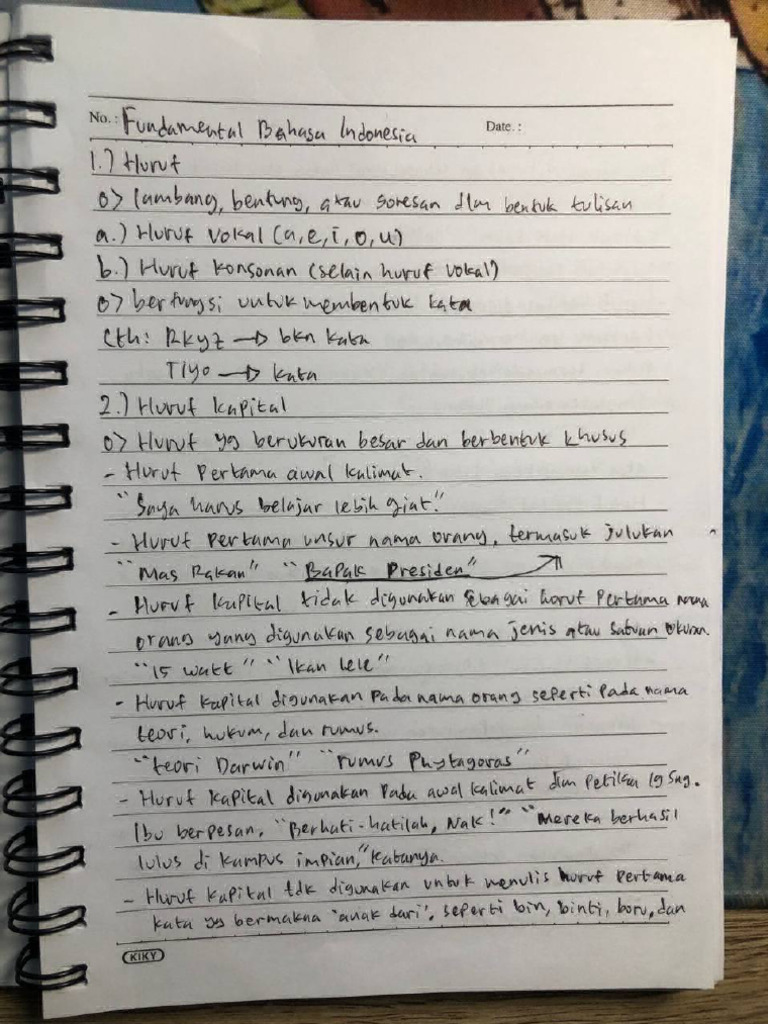 No. : Fundamental Bahasa Indonesia Date. :
1.) Huruf
o> lambang, bentung, atau goresan dlm bentuk tulisan
a.) Huruf vokal (a, e, i, o, u)
b.) Huruf konsonan (selain huruf vokal)
o> berfungsi untuk membentuk kata
Cth: Rkyz → bkn kata
Tiyo → kata
2.) Huruf kapital
o> Huruf yg berukuran besar dan berbentuk khusus
- Huruf pertama awal kalimat.
"Saya harus belajar lebih giat."
- Huruf pertama unsur nama orang, termasuk julukan
"Mas Rakan" "Bapak Presiden"
- Huruf kapital tidak digunakan sebagai huruf pertama nama
orang yang digunakan sebagai nama jenis atau satuan ukuran.
"15 watt" "Ikan lele"
- Huruf kapital digunakan pada nama orang seperti pada nama
teori, hukum, dan rumus.
"teori Darwin" "rumus Phytagoras"
- Huruf kapital digunakan pada awal kalimat dlm petikan lgsng.
Ibu berpesan, "Berhati-hatilah, Nak!" "Mereka berhasil
lulus di kampus impian," katanya.
- Huruf kapital tdk digunakan untuk menulis huruf pertama
kata yg bermakna 'anak dari', seperti bin, binti, boru, dan
KIKY